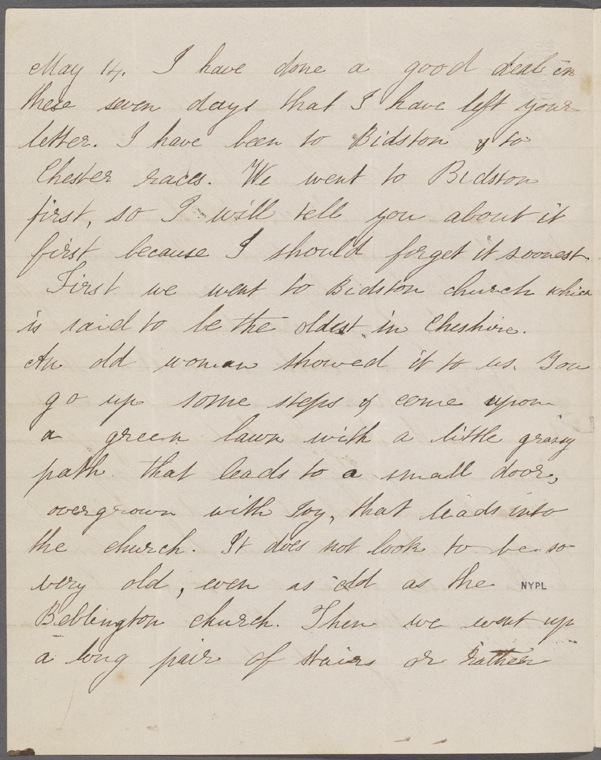 May 14. I have done a good deal in
these seven days that I have left your
letter. I have been to Bidston & to
Chester races. We went to Bidston
first, so I will tell you about it
first because I should forget it soonest
First we went to Bidston church which
is said to be the oldest in Cheshire.
An old woman showed it to us. You
go up some steps & come upon
a green lawn with a little grassy
path that leads to a small door,
overgrown with Ivy, that leads into
the church. It does not look to be so
very old, even as old as the
NYPL
Beblington church. Then we went up
a long pair of stairs or rather